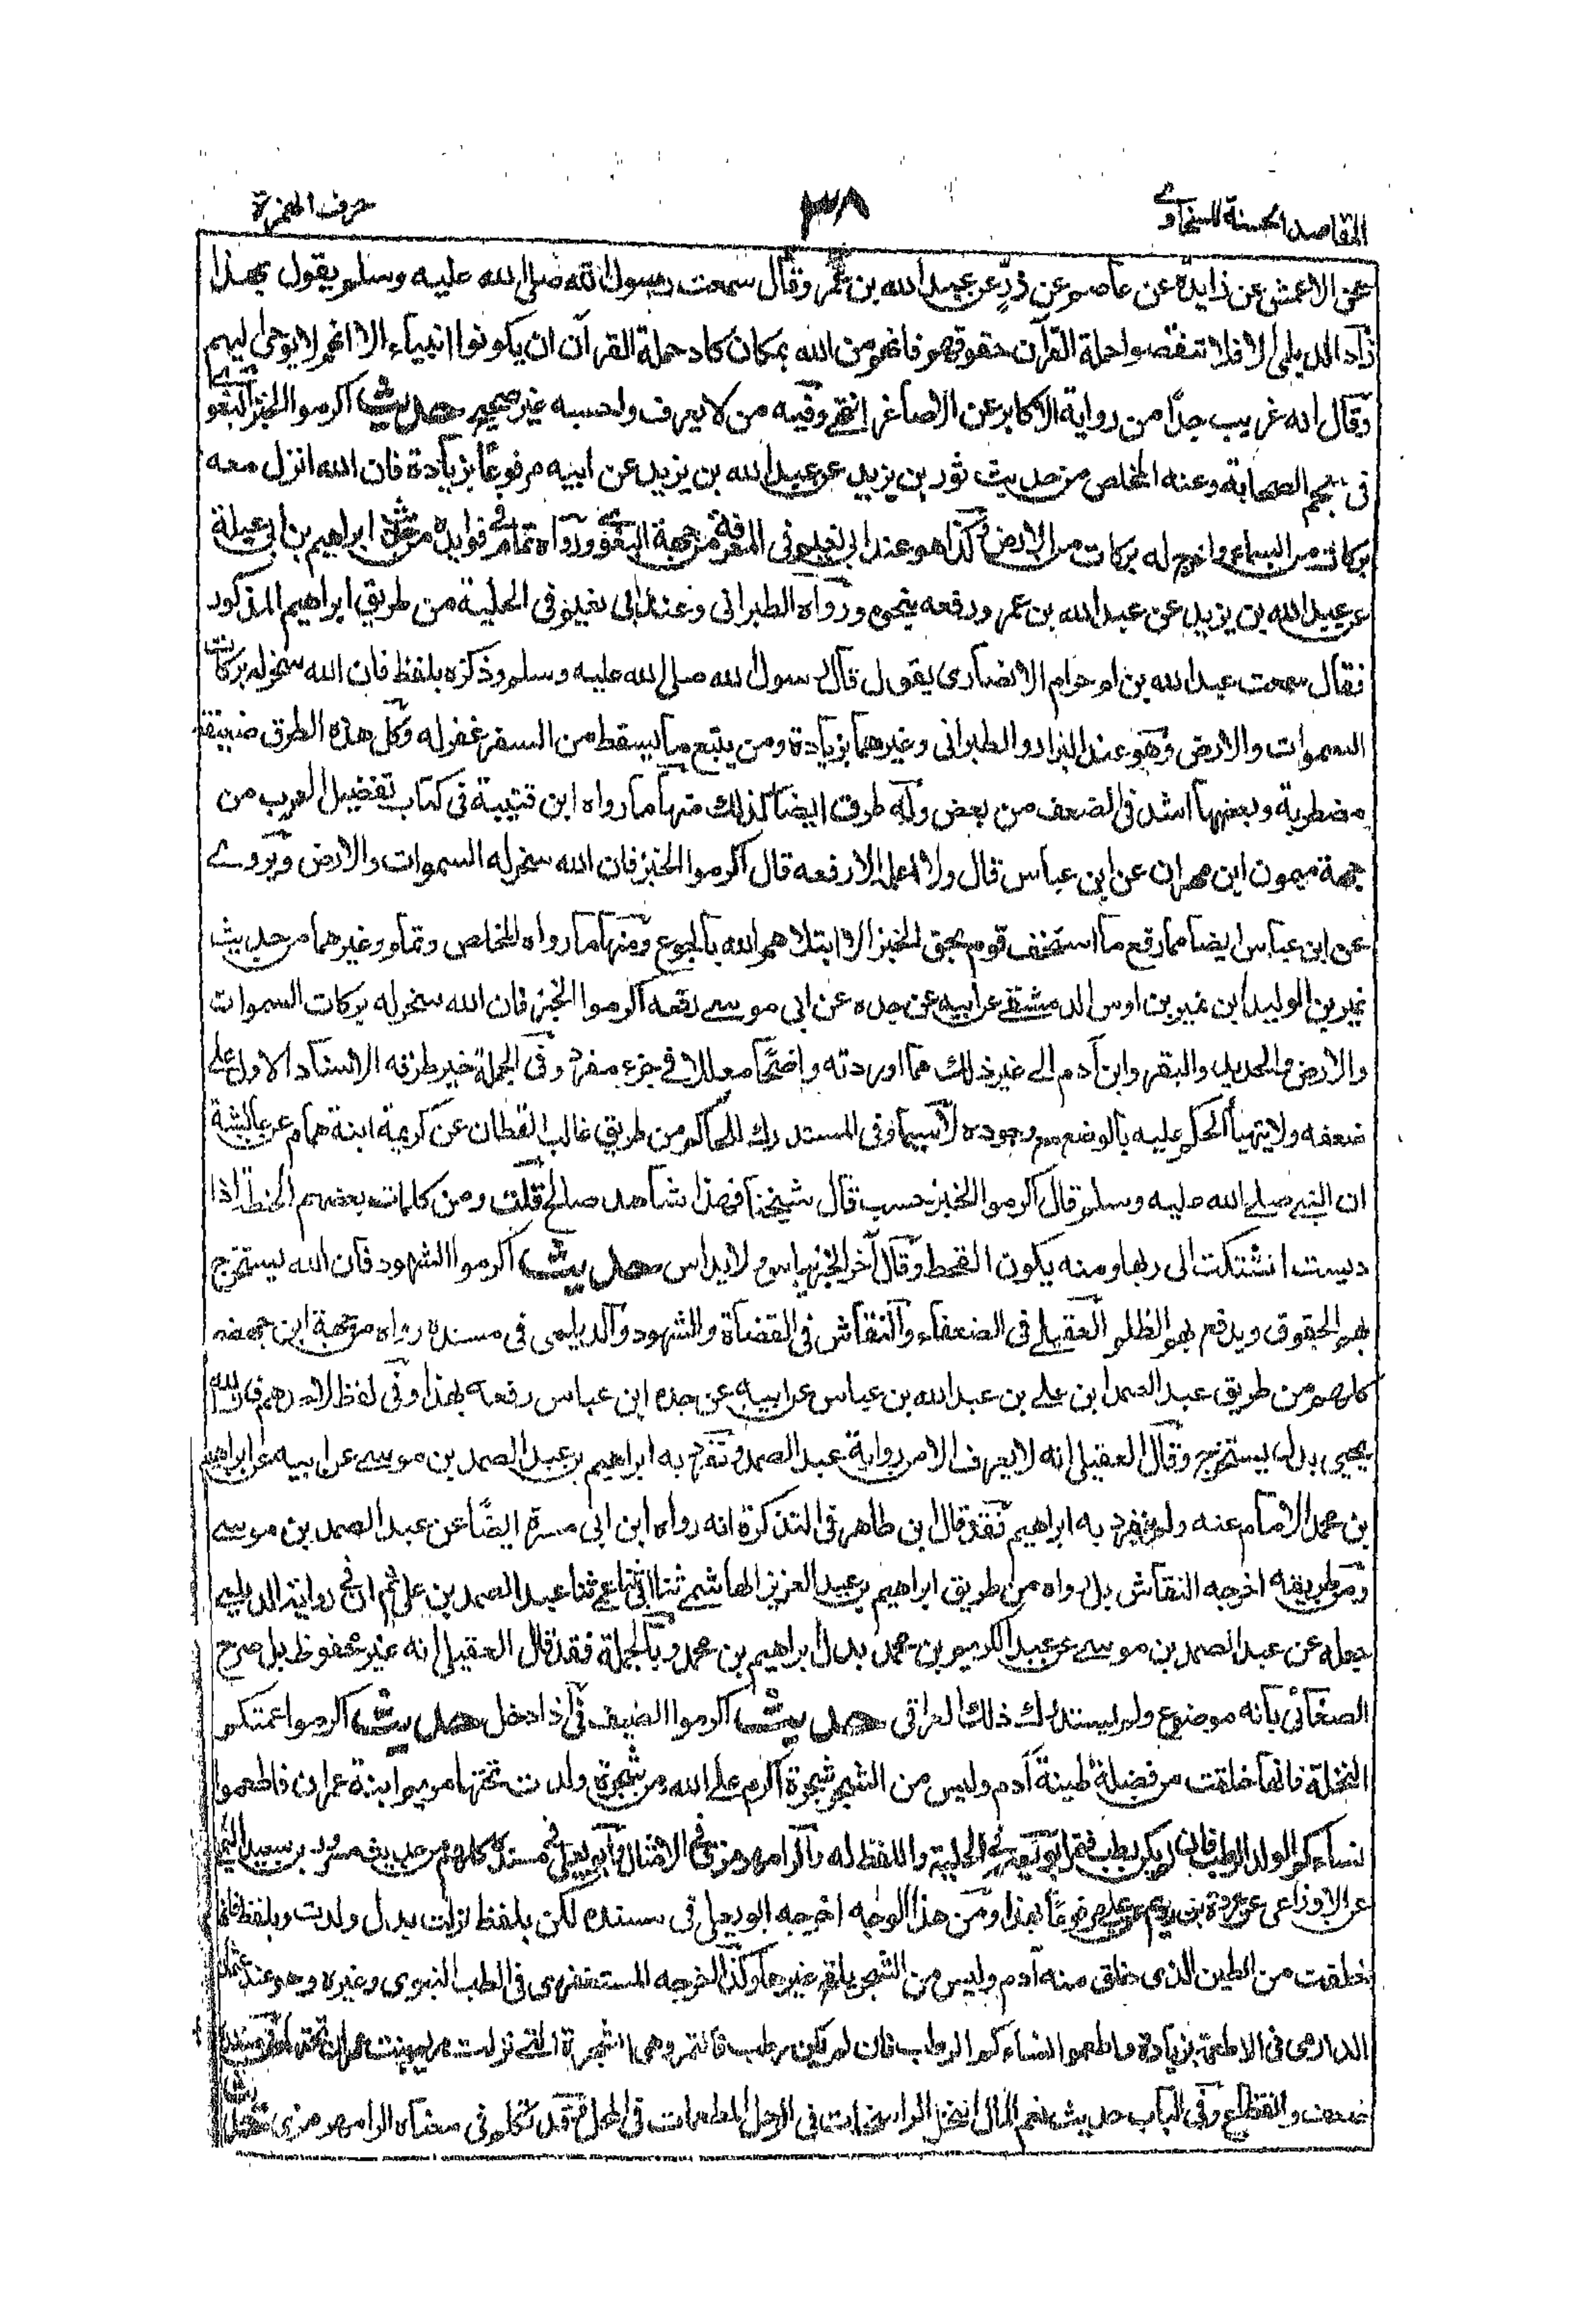 المقاصد الحسنة للسخاوے
٣٨
حرف الهمزة
عن الاعمش عن زايدة عن عاصم عن زر عن عبد الله بن عمر وقال سمعت رسول الله صلى الله عليه وسلم يقول بهذا
زاد الديلمى الا فلا تنقصوا حملة القرآن حقوقهم فانهم من الله بمكان كاد حملة القرآن ان يكونوا انبياء الا انهم لا يوحى اليهم
وقال انه غريب جدًا من رواية الاكابر عن الاصاغر انتهى وفيه من لا يعرف واحسبه غير صحيح حديث اكرموا الخبز البغوى
فى معجم الصحابة وعنه المخلص من حديث ثور بن يزيد عن عبد الله بن يزيد عن ابيه مرفوعًا بزيادة فان الله انزل معه
بركات من السماء واخرج له بركات من الارض وكذا هو عند ابى نعيم فى المعرفة من جهة البغوى ورواه تمام فى فوايده من حديث ابراهيم بن ابى عبلة
عن عبد الله بن يزيد عن عبد الله بن عمر ورفعه بنحوه ورواه الطبرانى وعند ابى نعيم فى الحلية من طريق ابراهيم المذكور
فقال سمعت عبد الله بن ام حرام الانصارى يقول قال رسول الله صلى الله عليه وسلم وذكره بلفظ فان الله سخر له بركات
السموات والارض وهو عند البزار والطبرانى وغيرهما بزيادة ومن يتبع ما يسقط من السفر غفر له وكل هذه الطرق ضعيفة
مضطربة وبعضها اشد فى الضعف من بعض وله طرق ايضا كذلك منها ما رواه ابن قتيبة فى كتاب تفضيل العرب من
جهة ميمون ابن مهران عن ابن عباس قال ولا اعلمه الا رفعه قال اكرموا الخبز فان الله سخر له السموات والارض ويروے
عن ابن عباس ايضا مما رفع ما استخف قوم بحق الخبز الا ابتلاهم الله بالجوع ومنها ما رواه المخلص وتمام وغيرهما من حديث
نمير بن الوليد ابن نمير بن اوس الدمشقے عن ابيه عن جده عن ابى موسے رفعه اكرموا الخبز فان الله سخر له بركات السموات
والارض والحديد والبقر وابن آدم الے غير ذلك مما اوردته واضحًا معللا فے جزء مفرد وفى الجملة خير طرقه الاسناد الاول على
ضعفه ولا يتهيأ الحكم عليه بالوضع مع وجوده لا سيما وفى المستدرك للحاكم من طريق غالب القطان عن كريمة ابنة همام عن عائشة
ان النبے صلے الله عليه وسلم قال اكرموا الخبز حسب قال شيخنا فهذا شاهد صالح قلت ومن كلمات بعضهم الحنطة اذا
ديست اشتكت الى ربها ومنه يكون القحط وقال آخر الخبز يباس ولا يداس حديث اكرموا الشهود فان الله يستخرج
بهم الحقوق ويدفع بهم الظلم العقيلے فى الضعفاء والنقاش فى القضاة والشهود والديلمى فى مسنده رواه من جهة ابن جهضم
كلهم من طريق عبد الصمد ابن علے بن عبد الله بن عباس عن ابيه عن جده ابن عباس رفعه بهذا وفى لفظ فان الله
يحيى بدل يستخرج وقال العقيلى انه لا يعرف الا من رواية عبد الصمد وتفرد به ابراهيم بن عبد الصمد بن موسے عن ابيه عن ابراهيم
بن محمد الامام عنه ولم ينفرد به ابراهيم فقد قال ابن طاهر فى التذكرة انه رواه ابن ابى مسرة ايضًا عن عبد الصمد بن موسے
ومن طريقه اخرجه النقاش بل رواه من طريق ابراهيم بن عبد العزيز الهاشمے ثنا ثنا عبد الصمد بن على ثم ان فى رواية الديلمے
جعله عن عبد الصمد بن موسے عن عبد الكريم بن محمد بدل ابراهيم بن محمد وبالجملة فقد قال العقيلى انه غير محفوظ بل صرح
الصغانى بانه موضوع ولم يستدرك ذلك العراقى حديث اكرموا الضيف فى اذا دخل حديث اكرموا عمتكم
النخلة فانها خلقت من فضيلة طينة آدم وليس من الشجر شجرة اكرم على الله من شجرة ولدت تحتها مريم ابنة عمران فاطعموا
نساءكم الولد الرطب فان لم يكن رطب فتمر ابو نعيم فے الحلية واللفظ له والرامهرمزى فى الامثال وابو يعلى فى مسنده كلهم من حديث مسرور بن سعيد التميمى
عن الاوزاعى عن عروة بن رويم عن على مرفوعًا بهذا ومن هذا الوجه اخرجه ابو يعلى فى مسنده لكن بلفظ نزلت بدل ولدت وبلفظ فانها
خلقت من الطين الذى خلق منه آدم وليس من الشجر يلقح غيرها وكذا اخرجه المستغفرى فى الطب النبوى وغيره وهو عند عثمان
الدارمى فى الاطعمة بزيادة واطعموا نساءكم الرطب فان لم يكن رطب فالتمر وهى الشجرة التے نزلت مريم بنت عمران تحتها وفى سنده
ضعف وانقطاع وفى الباب حديث نعم المال النخل الراسخات فى الوحل المطعمات فى المحل وقد تكلم فى معناه الرامهرمزى حديث